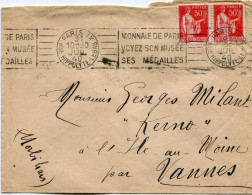 DE PARIS
MUSÉE
DAILLES
PARIS IV
JUIL
40
HIPPOLYTE L
MONNAIE DE PARIS
VOYEZ SON MUSÉE
SES MÉDAILLES
50
50
Monsieur Georges Milant
"Kerno"
à l'Ile au Moine
par Vannes
(Morbihan)